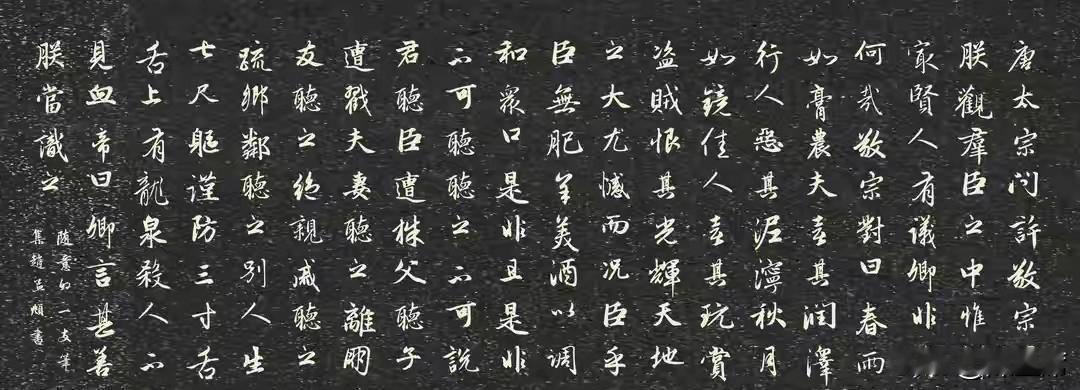 唐太宗问許敬宗
朕觀羣臣之中惟
㝡賢人有議卿非
何哉敬宗對曰春雨
如膏農夫喜其润澤
行人惡其泥濘秋月
如鏡佳人喜其玩賞
盜賊恨其光輝天地
之大尤憾而况臣乎
臣無肥羊美酒以調
和眾口是非且是非
不可聽之不可說
君聽臣遭株父聽子
遭戮夫妻聽之離朋
友聽之絕親戚聽之
疏鄉鄰聽之别人生
七尺軀謹防三寸舌
舌上有龍泉殺人不
見血帝曰卿言甚善
朕當識之
隨意的一支筆
集趙孟頫書